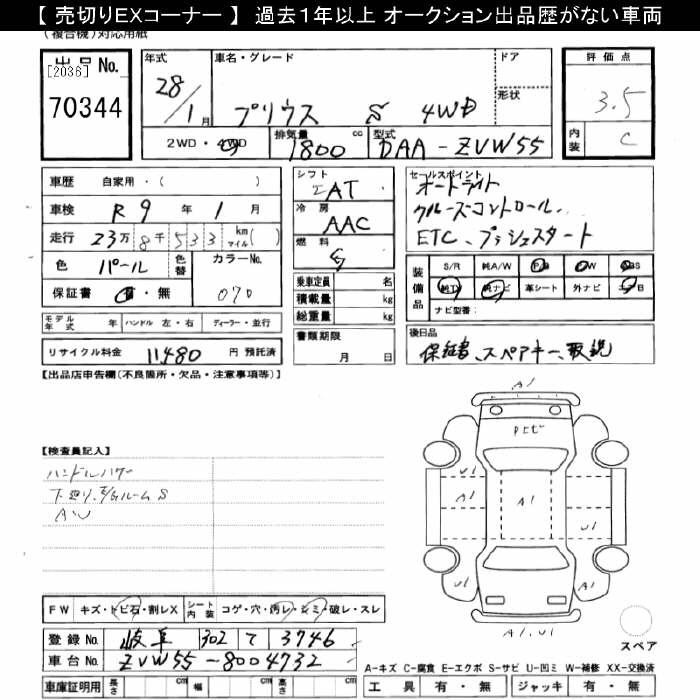 【 売切りEXコーナー 】 過去１年以上 オークション出品歴がない車両
(複合機)対応用紙
出品No.
[2036]
70344
年式 28/1月
車名・グレード プリウス S 4WD
ドア
形状
2WD・4WD
排気量 1800 cc
型式 DAA-ZVW55
評価点 3.5
内装 C
車歴 自家用・( )
車検 R9年1月
走行 23万8千533 km マイル( )
色 パール
色替
カラーNo. 070
保証書 有・無
モデル年式 年 ハンドル 左・右 ディーラー・並行
リサイクル料金 11,480 円 預託済
シフト AT
冷房 AAC
燃料 G
乗車定員 名
積載量 kg
総重量 kg
書類期限 月 日
セールスポイント
オートライト
クルーズコントロール、
ETC、プッシュスタート
装備品
S/R 純A/W P/S P/W ABS
純TV 純ナビ 革シート 外ナビ エアB
ナビ型番:
後日品
保証書、スペアキー、取説
【出品店申告欄(不良箇所・欠品・注意事項等)】
【検査員記入】
ハンドルハゲ
下廻り、E/GルームS
AU
A1
Pトビ
U1
A1
A1
U1
U1
A1
A1, U1
スペア
FW キズ・トビ石・割レX
シート内装 コゲ・穴・汚レ・シミ・破レ・スレ
登録No. 岐阜 302 て 3746
車台No. ZVW55-8004732
車庫証明用 長さ cm 幅 cm 高さ cm
A-キズ C-腐食 E-エクボ S-サビ U-凹ミ W-補修 XX-交換済
工具 有・無 ジャッキ 有・無